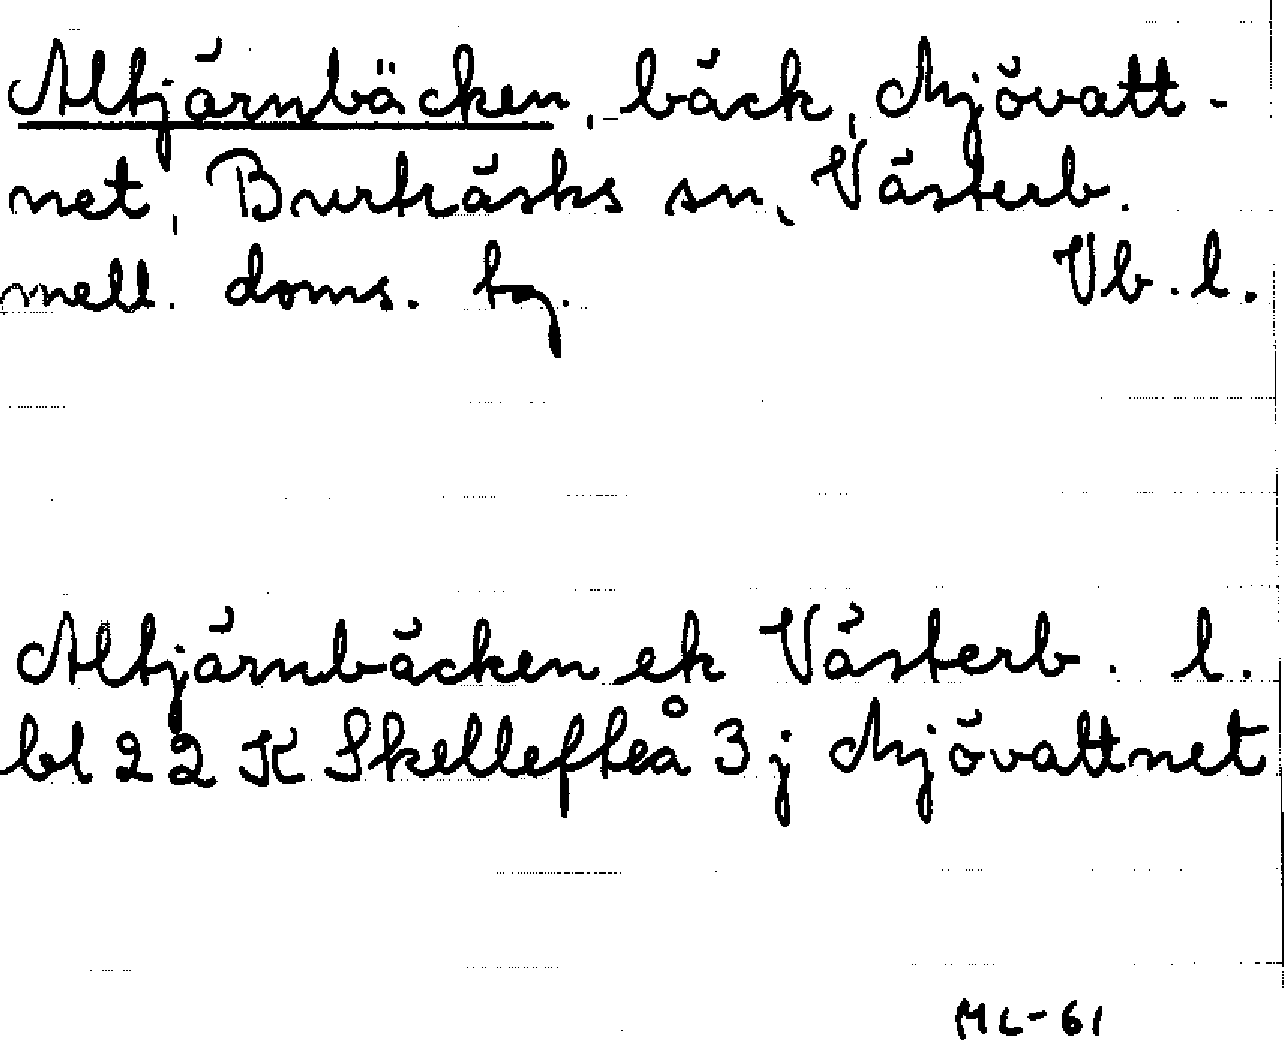 Altjärnbäcken, bäck, Mjövatt-
net, Burträsks sn, Västerb.
mell. doms. tg. Vb. l.
Altjärnbäcken ek Västerb. l.
bl 22 K Skellefteå 3 j Mjövattnet
ML-61